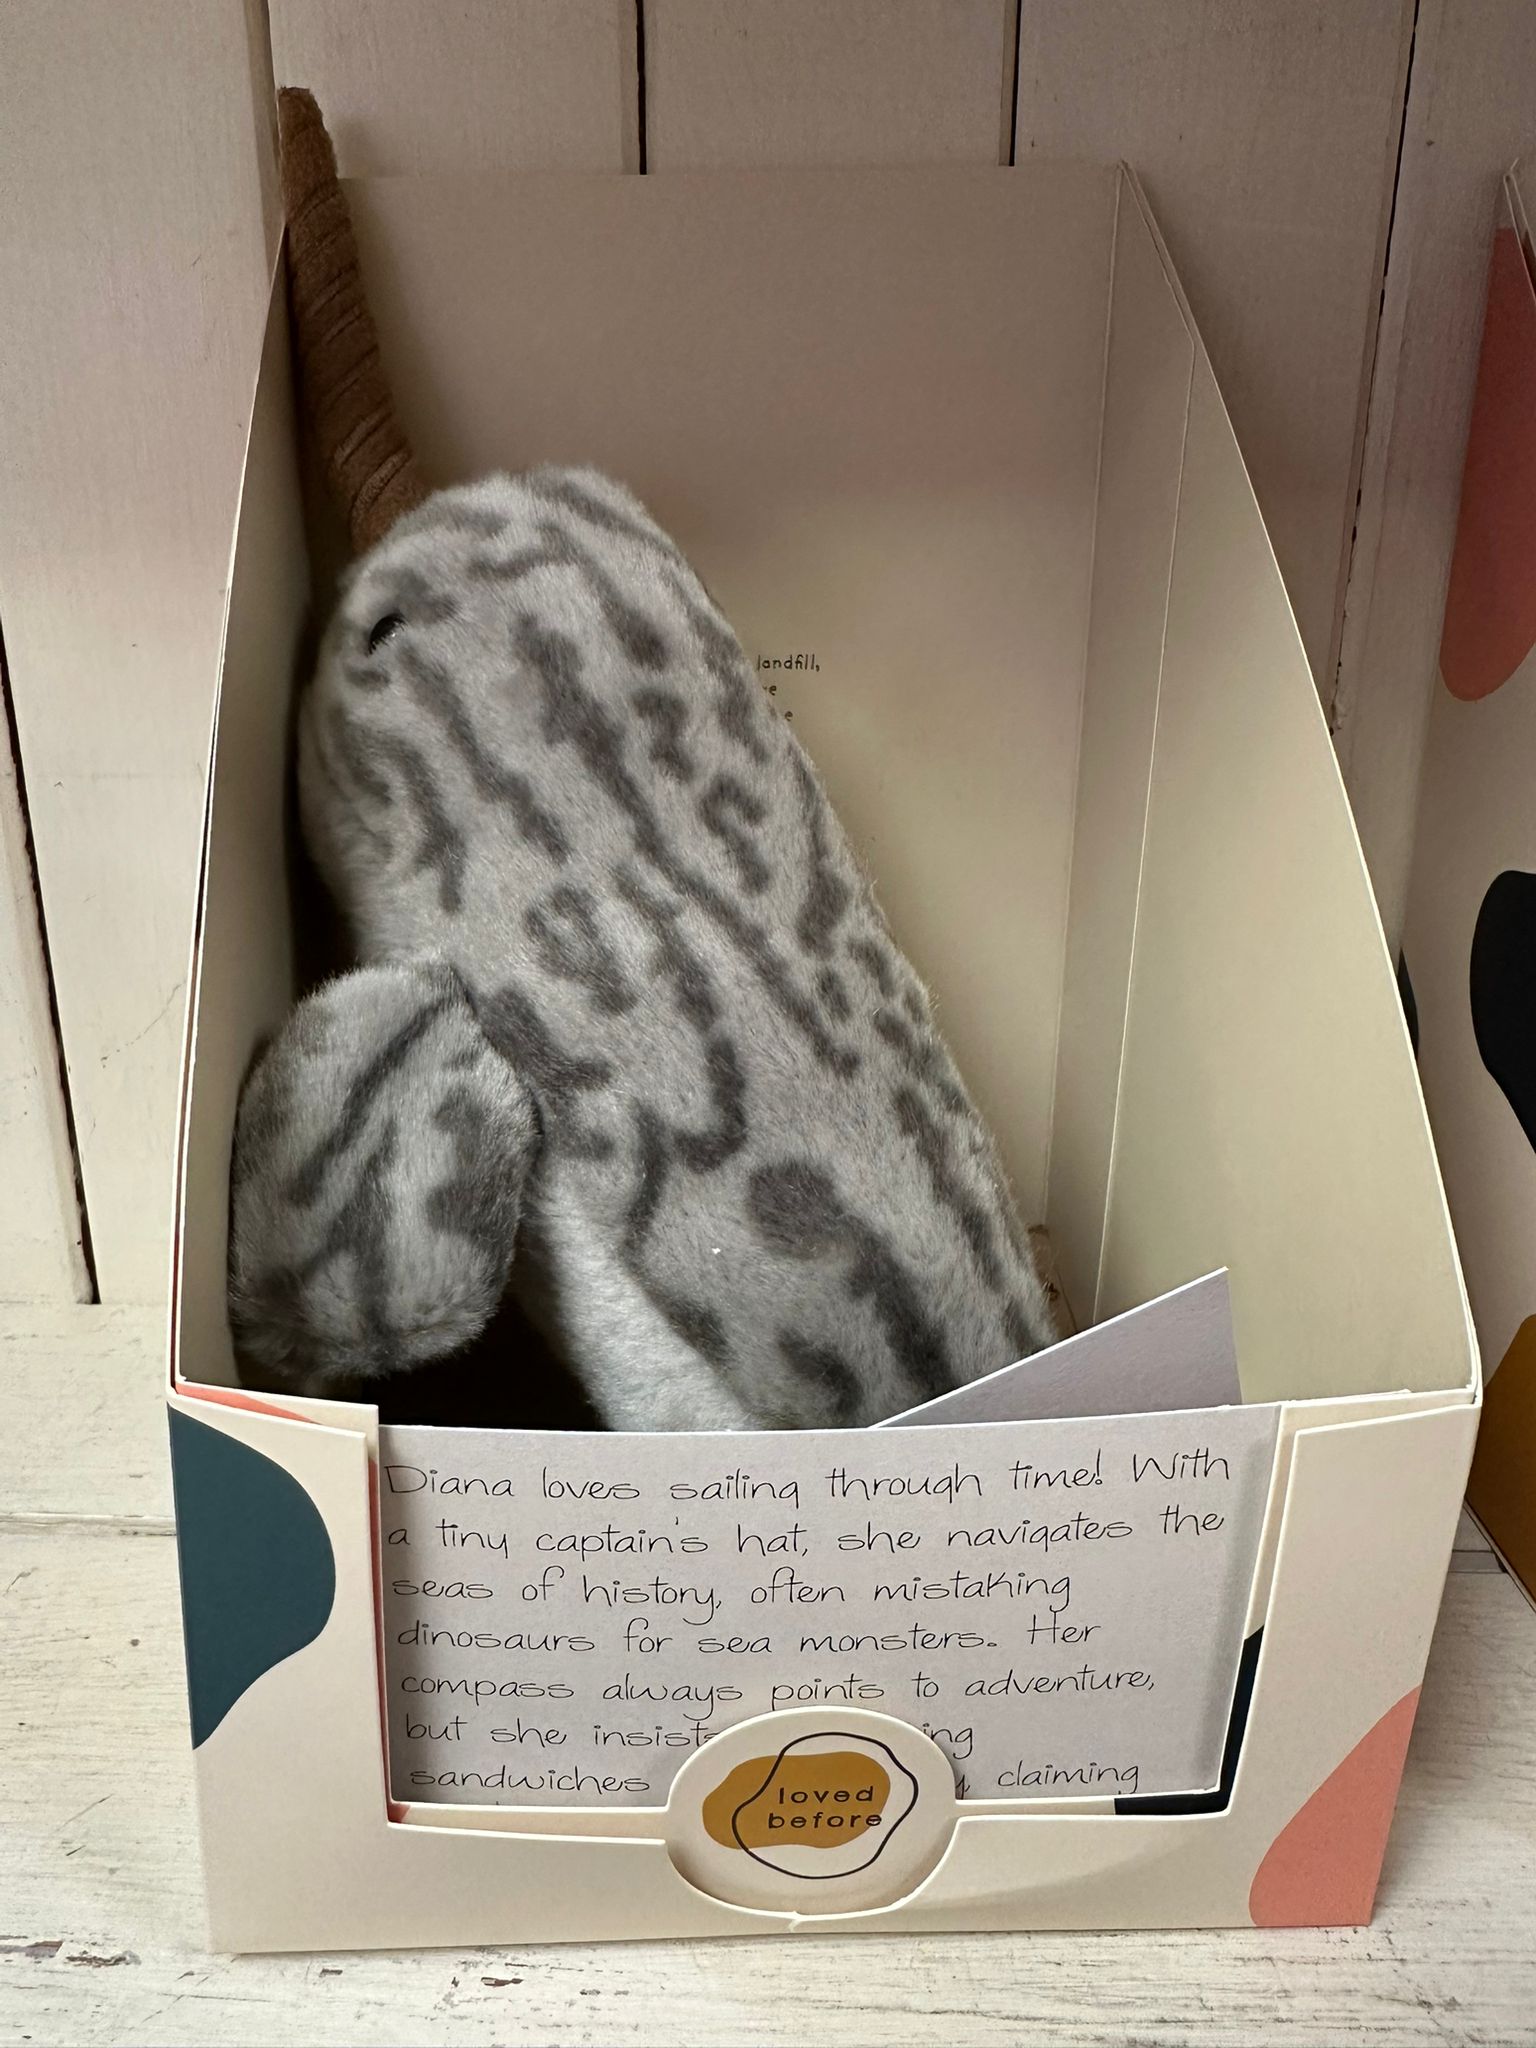 landfill,
Diana loves sailing through time! With
a tiny captain's hat, she navigates the
seas of history, often mistaking
dinosaurs for sea monsters. Her
compass always points to adventure,
but she insists
sandwiches claiming
loved
before